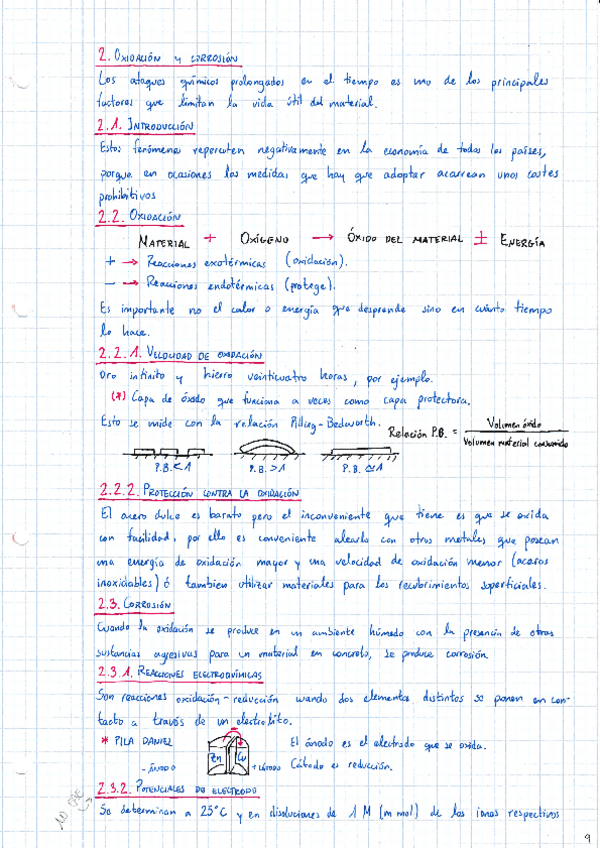 2. OXIDACIÓN Y CORROSIÓN
Los ataques químicos prolongados en el tiempo es uno de los principales
factores que limitan la vida útil del material.
2.1. INTRODUCCIÓN
Estos fenómenos repercuten negativamente en la economía de todos los países,
porque en ocasiones las medidas que hay que adoptar acarrean unos costes
prohibitivos
2.2. OXIDACIÓN
MATERIAL + OXÍGENO → ÓXIDO DEL MATERIAL ± ENERGÍA
+ → Reacciones exotérmicas (oxidación).
- → Reacciones endotérmicas (protege).
Es importante no el calor o energía que desprende sino en cuánto tiempo
lo hace.
2.2.1. VELOCIDAD DE OXIDACIÓN
Oro infinito y hierro veinticuatro horas, por ejemplo.
(*) Capa de óxido que funciona a veces como capa protectora.
Esto se mide con la relación Pilling-Bedworth.
Relación P.B. = Volumen óxido
Volumen material consumido
P.B. < 1 P.B. > 1 P.B. ≃ 1
2.2.2. PROTECCIÓN CONTRA LA OXIDACIÓN
El acero dulce es barato pero el inconveniente que tiene es que se oxida
con facilidad, por ello es conveniente alearlo con otros metales que posean
una energía de oxidación mayor y una velocidad de oxidación menor (aceros
inoxidables) ó tambien utilizar materiales para los recubrimientos superficiales.
2.3. CORROSIÓN
Cuando la oxidación se produce en un ambiente húmedo con la presencia de otras
sustancias agresivas para un material en concreto, se produce corrosión.
2.3.1. REACCIONES ELECTROQUÍMICAS
Son reacciones oxidación-reducción cuando dos elementos distintos se ponen en con-
tacto a través de un electrolito.
* PILA DANIEL
Zn Cu
El ánodo es el electrodo que se oxida.
- ÁNODO + CÁTODO Cátodo es reducción.
2.3.2. POTENCIALES DE ELECTRODO
NO CAE
Se determinan a 25°C y en disoluciones de 1 M (m mol) de los iones respectivos
9